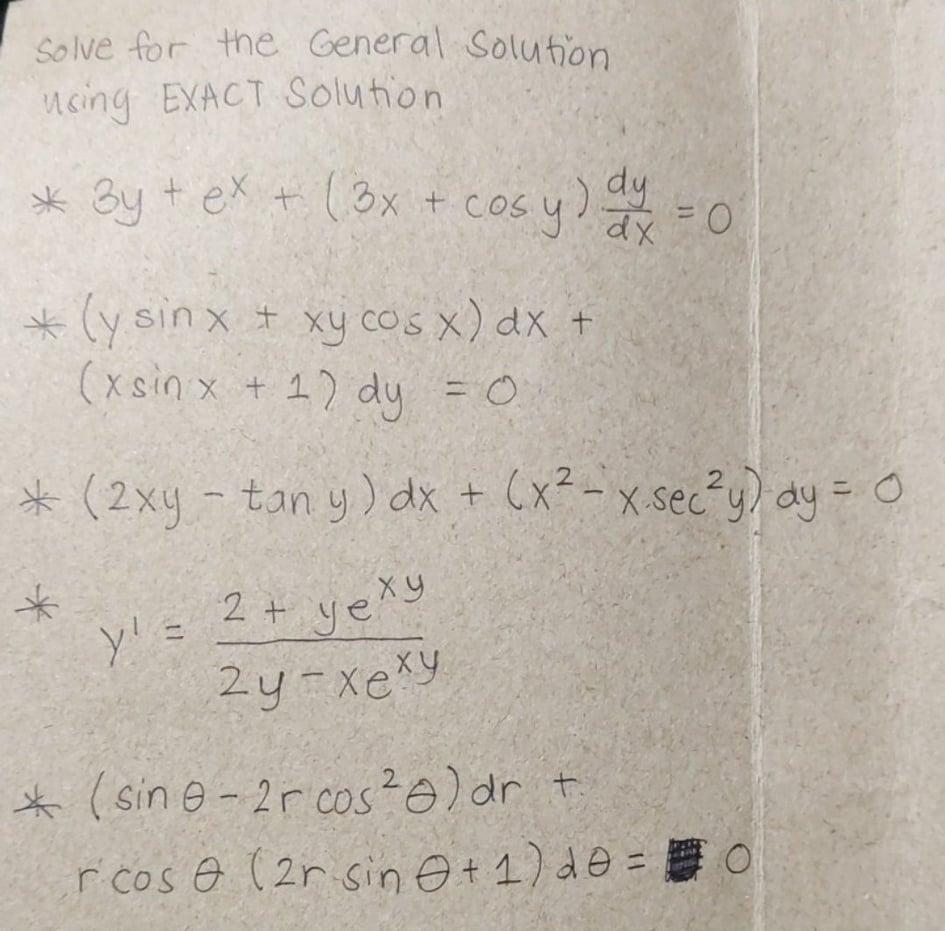 Solve for the General Solution
using EXACT Solution
* 3y + eˣ + (3x + cos y) dy/dx = 0
* (y sin x + xy cos x) dx +
(x sin x + 1) dy = 0
* (2xy - tan y) dx + (x² - x sec² y) dy = 0
* y' = (2 + ye^(xy)) / (2y - xe^(xy))
* (sin θ - 2r cos² θ) dr +
r cos θ (2r sin θ + 1) dθ = 0